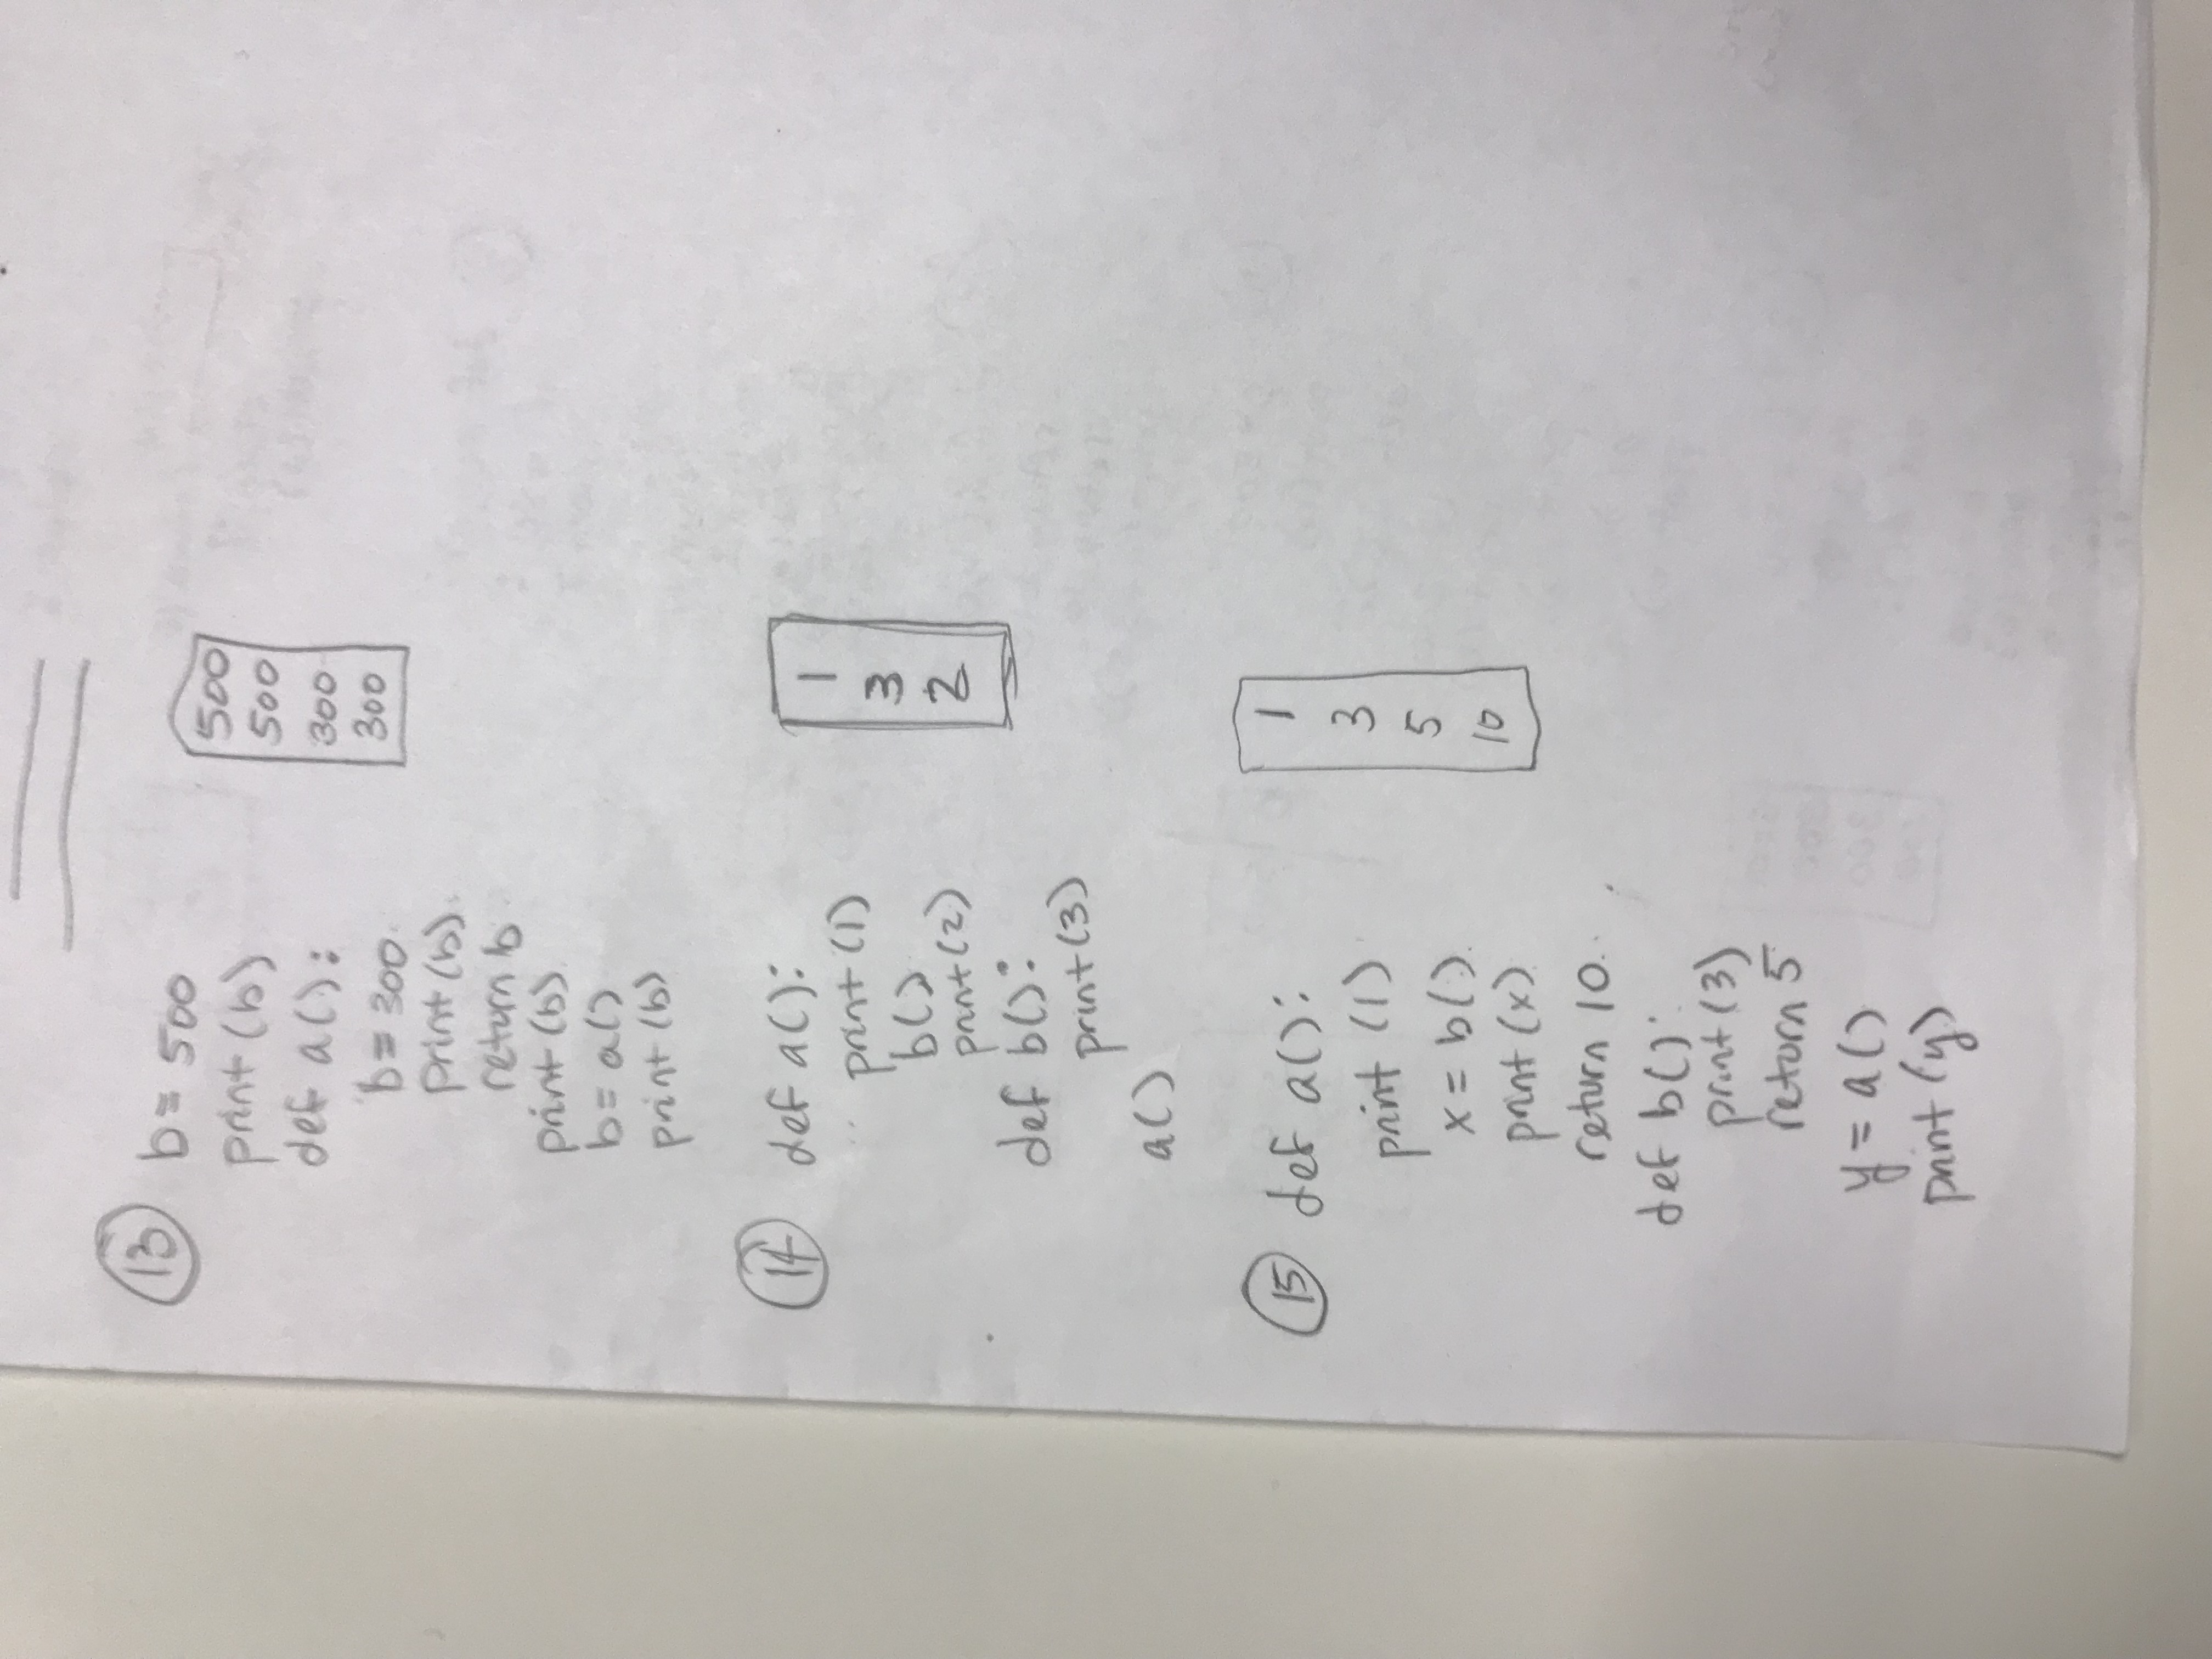 13
b = 500
print (b)
def a():
b = 300
print (b)
return b
print (b)
b = a()
print (b)
500
500
300
300
14
def a():
print (1)
b()
print (2)
def b():
print (3)
a()
1
3
2
15
def a():
print (1)
x = b()
print (x)
return 10
def b():
print (3)
return 5
y = a()
print (y)
1
3
5
10